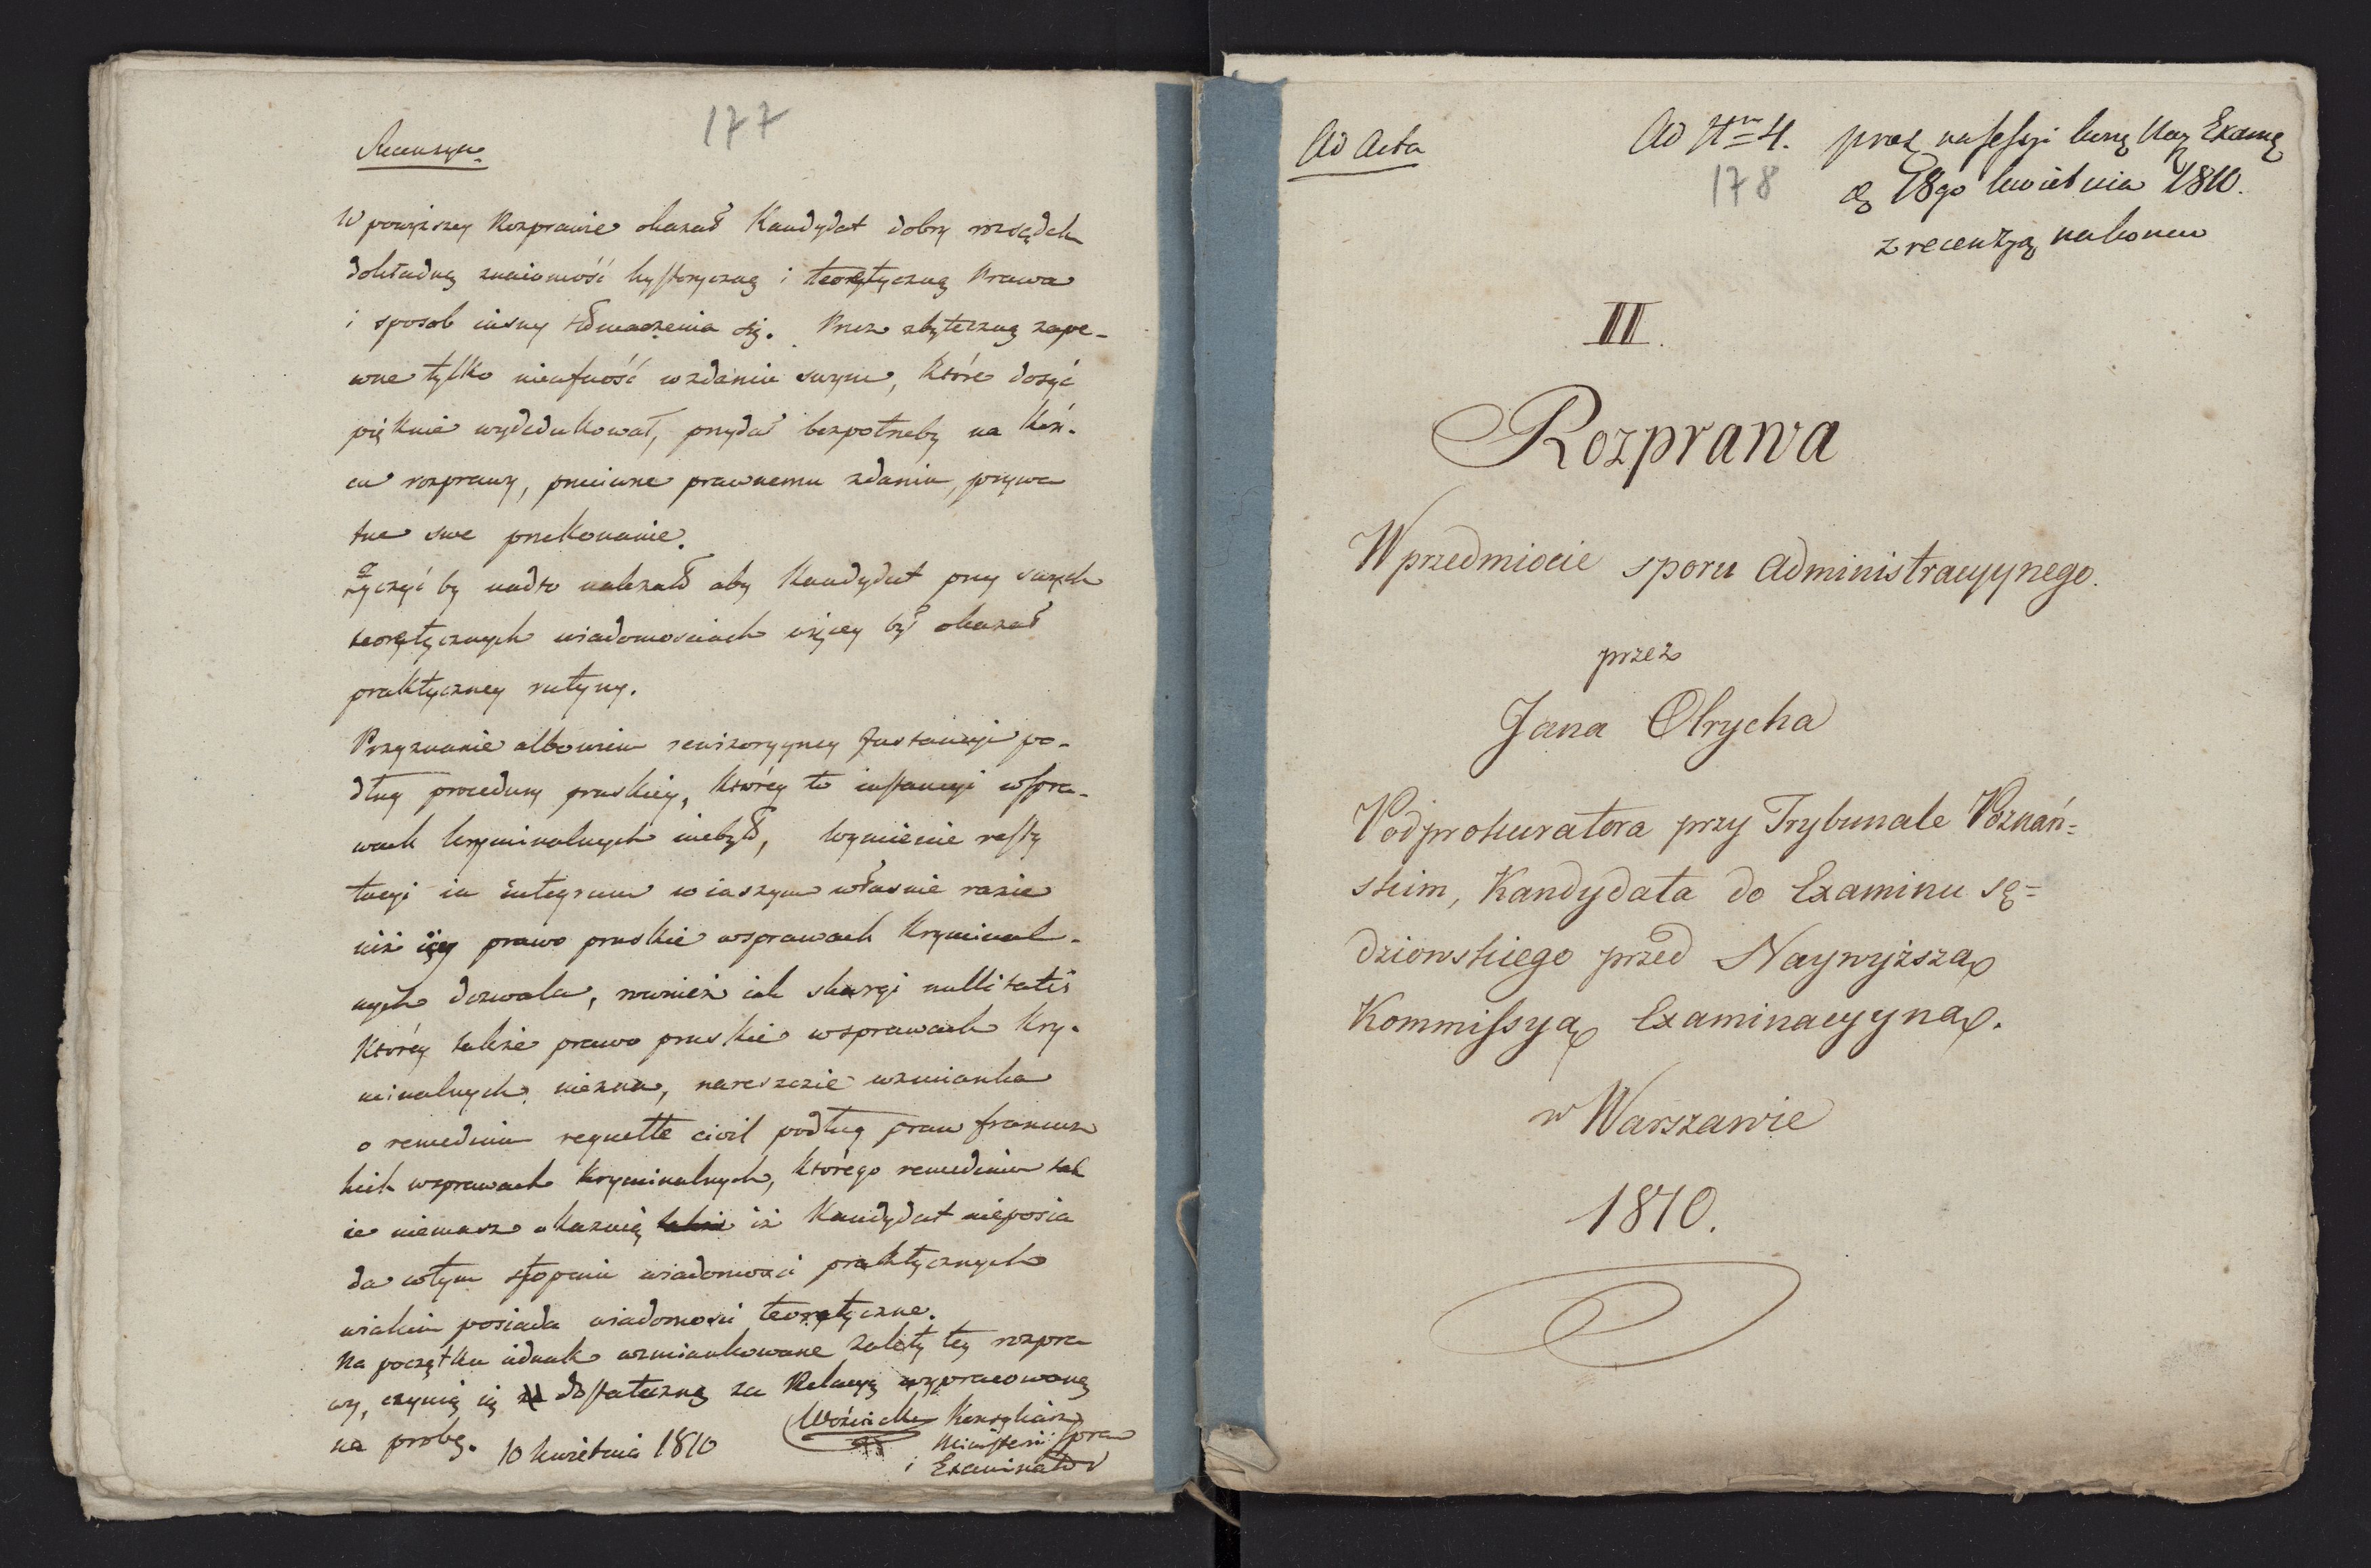 177
Recenzya.
W powyższey Rozprawie okazał Kandydat dobry rozsądek
dokładną znaiomość hystoryczną i teoretyczną Prawa
i sposob iasny tłomaczenia się. Przez zbyteczną zape-
wne tylko nieufność w zdaniu swym, które dosyć
pięknie wydedukował, przydał bez potrzeby na koń-
cu rozprawy, przeciwne prawnemu zdaniu, prywa
tne swe przekonanie.
Życzyć by nadto należało aby Kandydat przy swych
teoretycznych wiadomościach więcey był okazał
praktyczney rutyny.
Przyznanie albowiem rewizoryyney Instancyi po-
dług procedury pruskiey, którey to instancyi w spra-
wach kryminalnych niebyło, wymienie resty
tucyi in integrum w inszym właśnie razie
niż iey prawo pruskie w sprawach kryminal-
nych dozwala, rownież iak skargi nullitatis
którey także prawo pruskie w sprawach kry-
minalnych niezna, nareszcie wzmianka
o remedium requette civil podług praw francuz
kich w sprawach kryminalnych, którego remedium tak
że niemasz okazuią iż Kandydat nieposia
da w tym stopniu wiadomości praktycznych
w iakim posiada wiadomości teoretyczne.
Na początku iednak wzmiankowane zalety tey rozpra
wy, czynią ią dostateczną za Relacyą wypracowaną
na probę. 10 kwietnia 1810
Konsyliarz
Ministerii Spra
i Examinator
Ad Acta
Ad Nrm 4.
praes na sessyi Exam
d 18go kwietnia 1810.
z recenzyą na koncu
178
II.
Rozprawa
W przedmiocie sporu administracyynego.
przez
Jana Olrycha
Podprokuratora przy Trybunale Poznań=
skim, Kandydata do Examinu sę=
dziowskiego przed Naywyższą
Kommissyą Examinacyyną.
w Warszawie
1810.